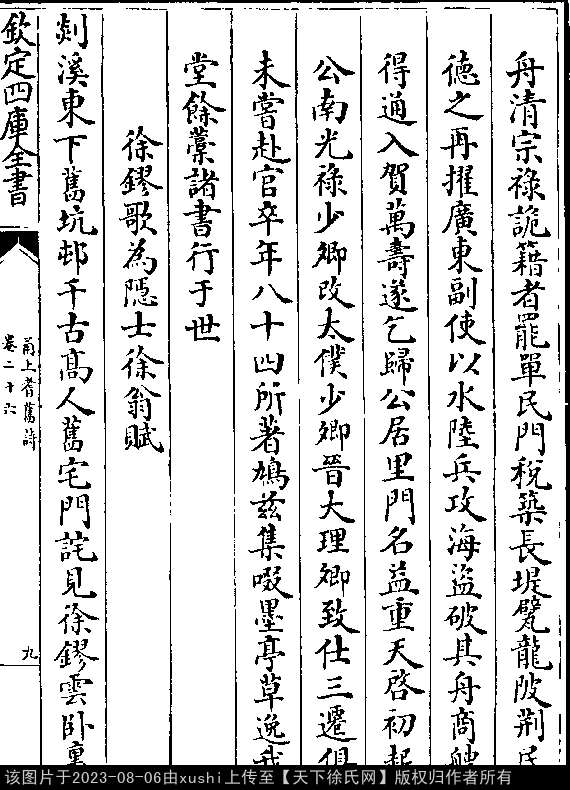 舟清宗祿詭籍者罷單民門稅築長堤甓龍陂荆民
德之再擢廣東副使以水陸兵攻海盜破其舟商舶
得通入賀萬壽遂乞歸公居里門名益重天啓初起
公南光祿少卿改太僕少卿晉大理卿致仕三遷俱
未嘗赴官卒年八十四所著鳩兹集啜墨亭草逸我
堂餘藁諸書行于世
徐鏐歌為隱士徐翁賦
剡溪東下舊坑邨千古髙人舊宅門詫見徐鏐雲卧裏
欽定四庫全書
甬上耆舊詩
卷二十六
九
该图片于2023-08-06由xushi上传至【天下徐氏网】版权归作者所有